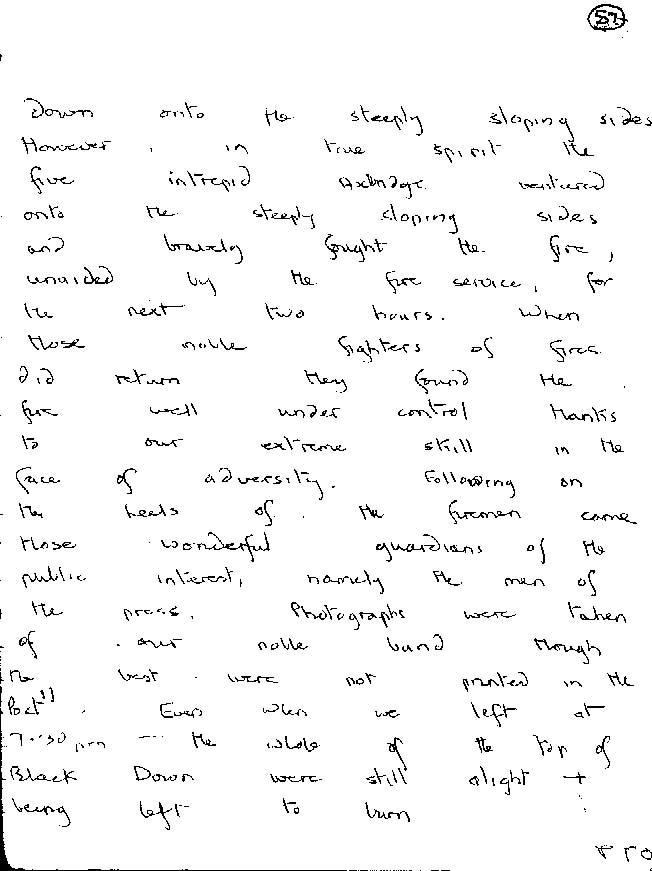 57
Down onto the steeply sloping sides
However, in true spirit the
five intrepid Axbridge ventured
onto the steeply sloping sides
and bravely fought the fire,
unaided by the fire service, for
the next two hours. When
those noble fighters of fires
did return they found the
fire well under control thanks
to our extreme skill in the
face of adversity. Following on
the heels of the firemen came
those wonderful guardians of the
public interest, namely the men of
the press. Photographs were taken
of our noble band though
the best were not printed in the
Post". Even when we left at
7.30 pm --- the whole of the top of
Black Down were still alight +
being left to burn
PTO